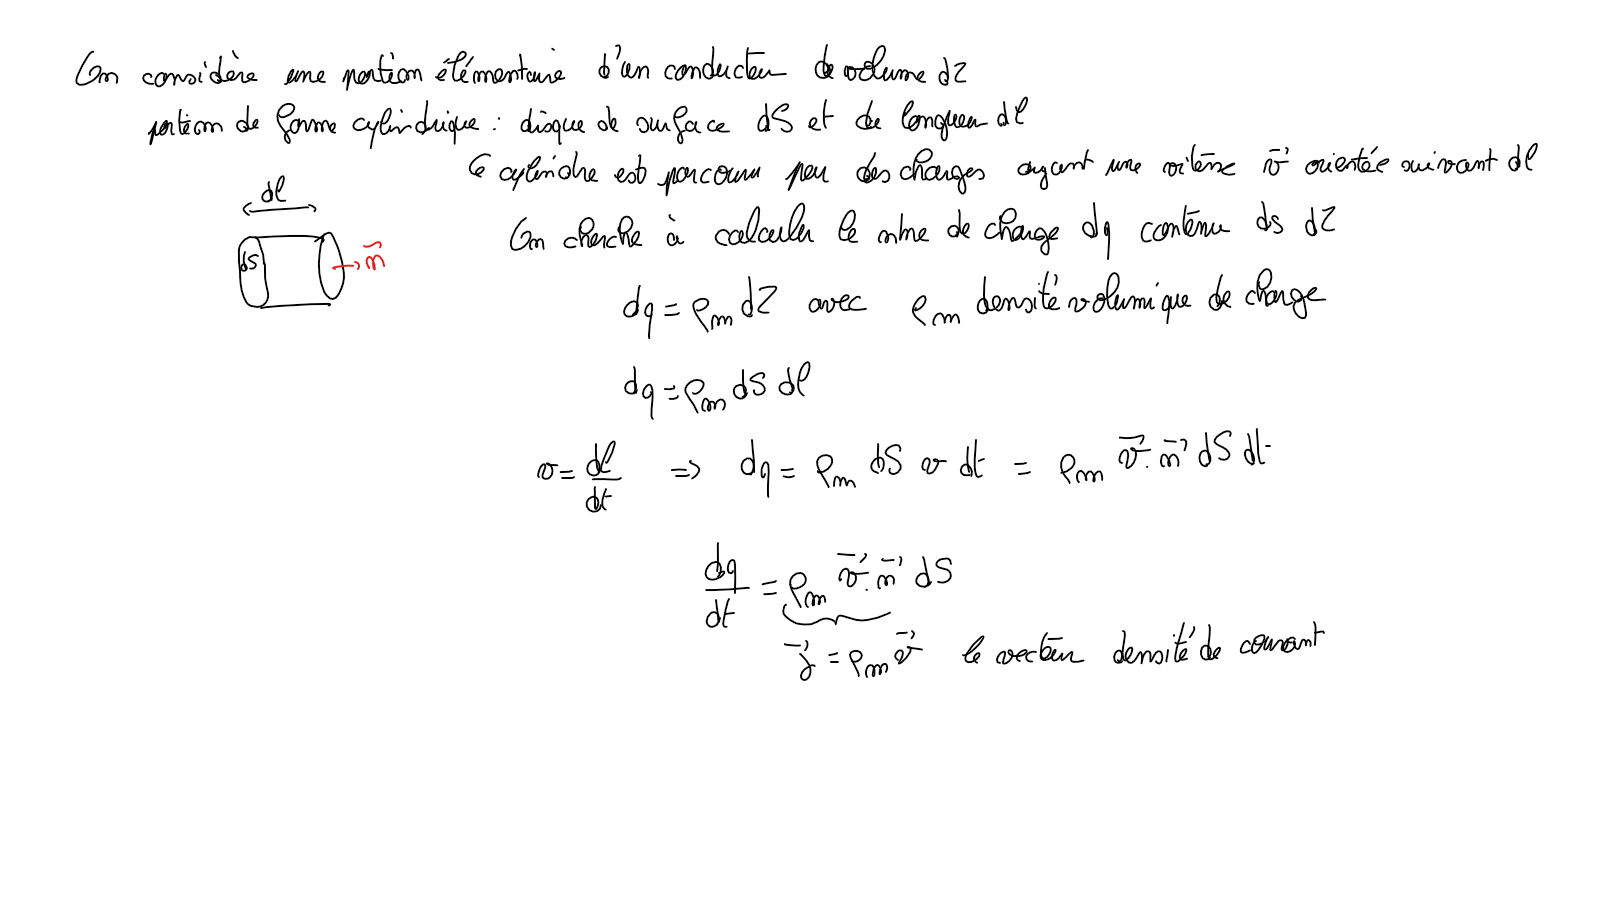 On considère une portion élémentaire d'un conducteur de volume dτ
portion de forme cylindrique : disque de surface dS et de longueur dl
Ce cylindre est parcouru par des charges ayant une vitesse v⃗ orientée suivant dl
dl
dS
n⃗
On cherche à calculer le nbre de charge dq contenu ds dτ
dq = ρm dτ avec ρm densité volumique de charge
dq = ρm dS dl
v = dl/dt => dq = ρm dS v dt = ρm v⃗.n⃗ dS dt
dq/dt = ρm v⃗.n⃗ dS
j⃗ = ρm v⃗ le vecteur densité de courant